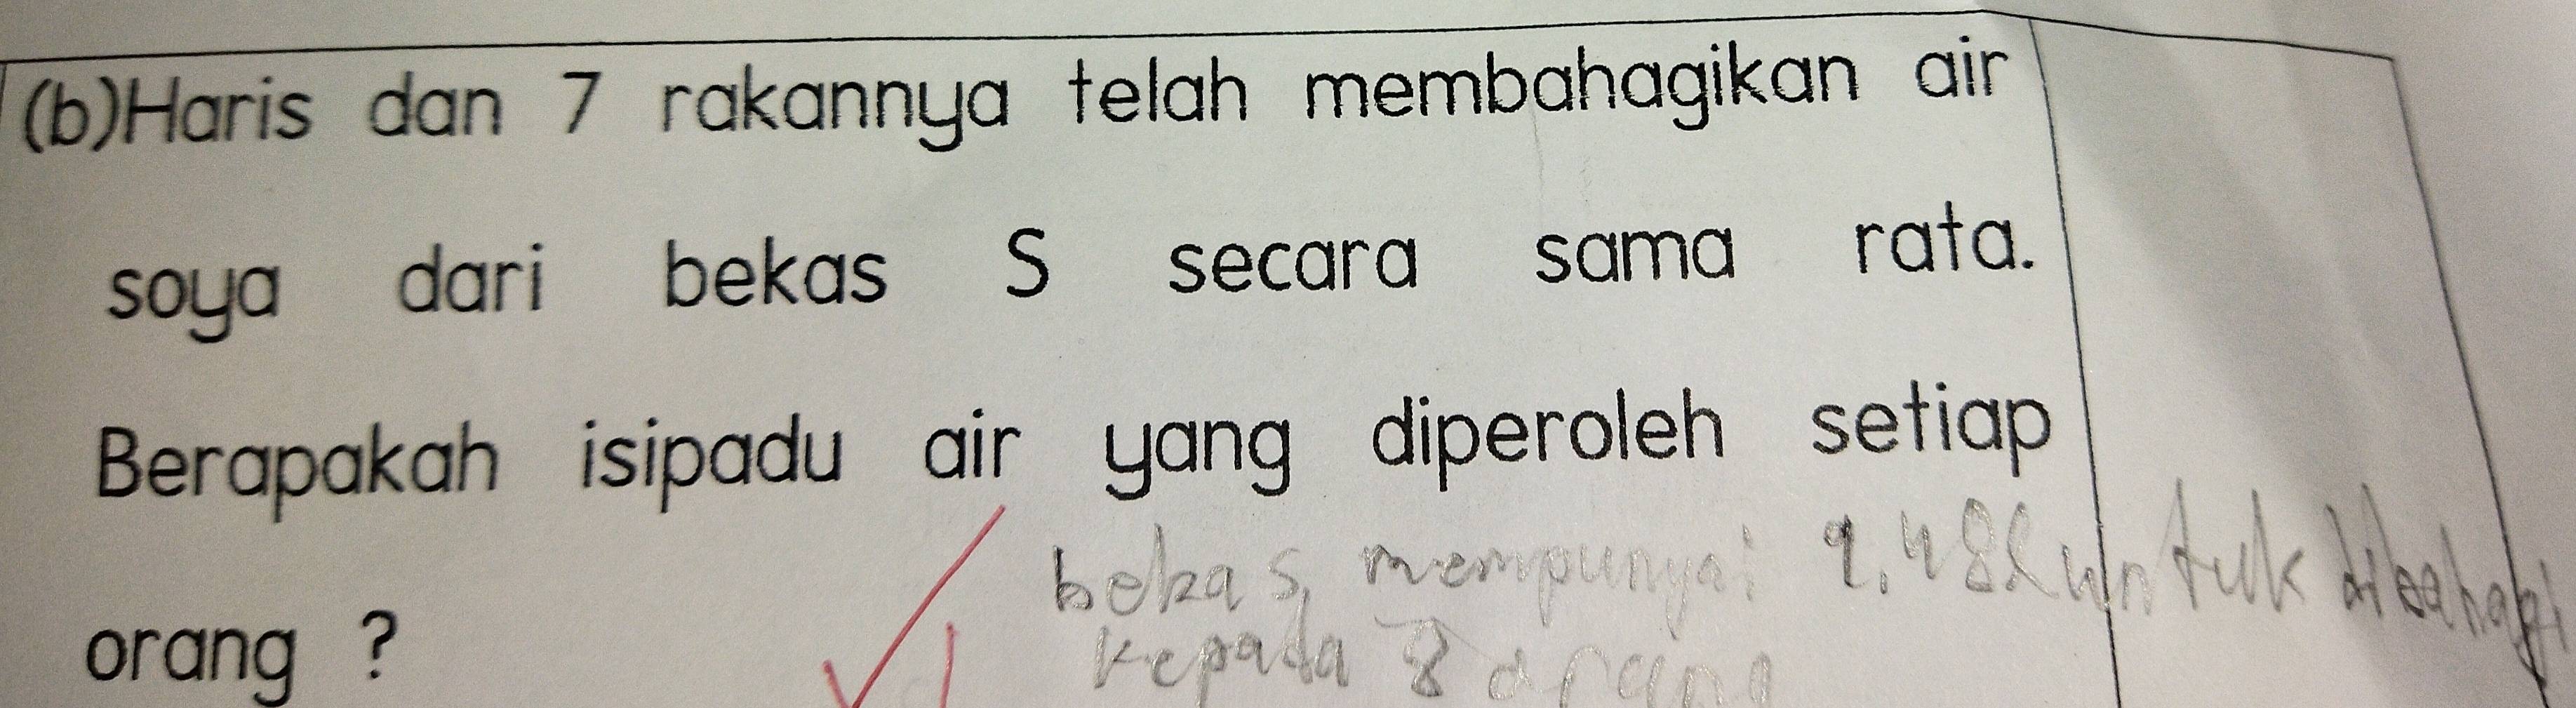 (b)Haris dan 7 rakannya telah membahagikan air
soya dari bekas S secara sama rata.
Berapakah isipadu air yang diperoleh setiap
orang ?
bekas mempunyai 9.48l untuk dibahagi
kepada 8 orang